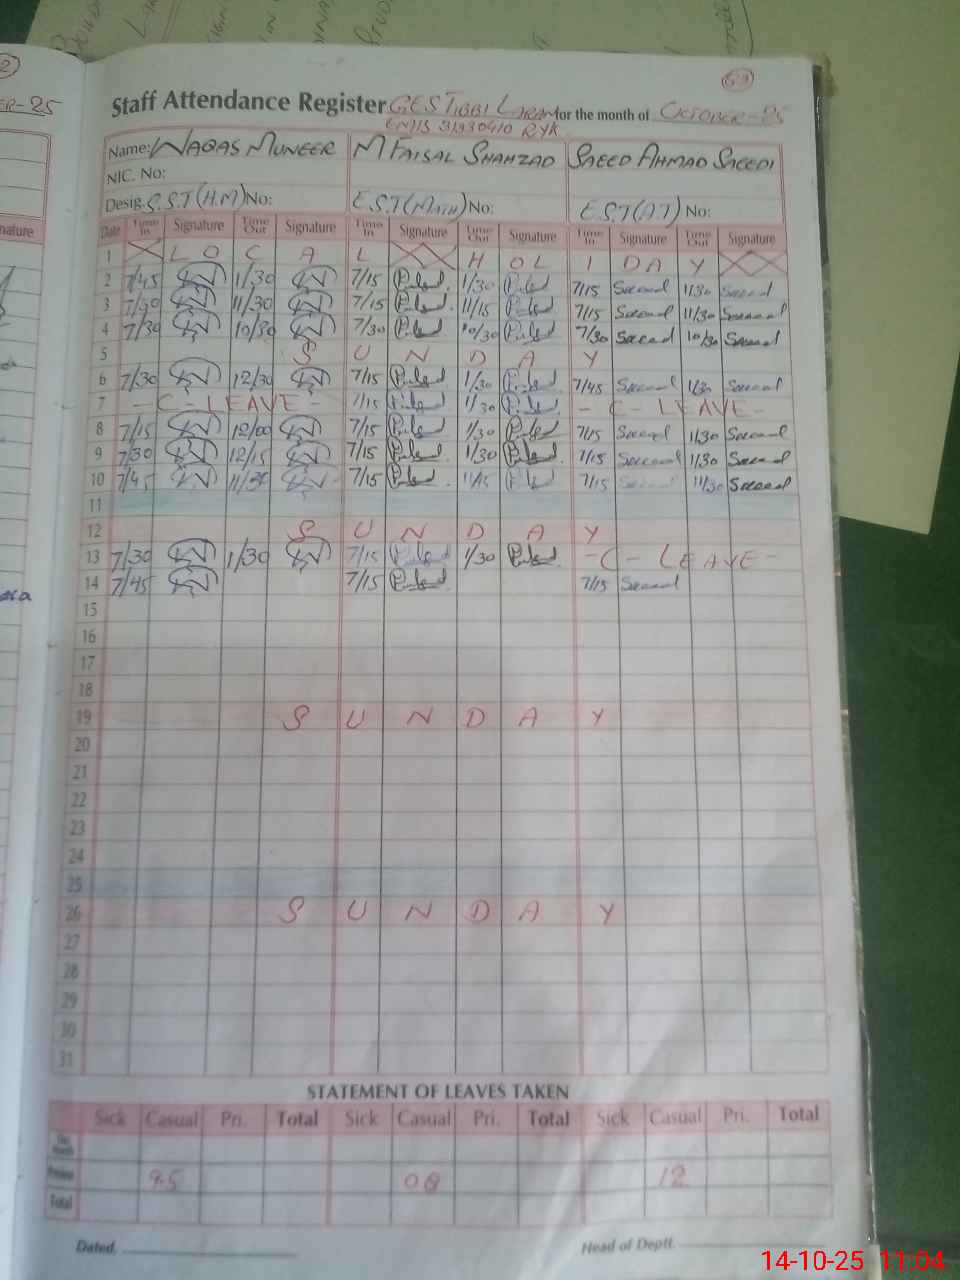 ER-25
63
Staff Attendance Register GES TIBBI LARAN for the month of OKTOBER-25
EMIS 31330410 RYK
Name: WAQAS MUNEER M FAISAL SHAHZAD SAEED AHMAD SAEEDI
NIC. No:
Desig. S.S.T (H.M) No: E.S.T (MATH) No: E.S.T (A.T) No:
Date Time In Signature Time Out Signature Time In Signature Time Out Signature Time In Signature Time Out Signature
1 L O C A L H O L I D A Y
2 7/45 1/30 7/15 1/30 7/15 Saeed 11/30 Saeed
3 7/30 11/30 7/15 11/15 7/15 Saeed 11/30 Saeed
4 7/30 10/30 7/30 10/30 7/30 Saeed 10/30 Saeed
5 S U N D A Y
6 7/30 12/30 7/15 1/30 7/45 Saeed 1/30 Saeed
7 - C - LEAVE - 7/15 1/30 - C - LEAVE -
8 7/15 12/00 7/15 1/30 7/15 Saeed 11/30 Saeed
9 7/30 12/15 7/15 1/30 7/15 Saeed 11/30 Saeed
10 7/45 11/30 7/15 11/15 7/15 Saeed 11/30 Saeed
11
12 S U N D A Y
13 7/30 1/30 7/15 1/30 - C - LEAVE -
14 7/45 7/15 7/15 Saeed
15
16
17
18
19 S U N D A Y
20
21
22
23
24
25
26 S U N D A Y
27
28
29
30
31
STATEMENT OF LEAVES TAKEN
Sick Casual Pri. Total Sick Casual Pri. Total Sick Casual Pri. Total
This Month
Previous 9.5 08 12
Total
Dated. Head of Deptt.
14-10-25 11:04